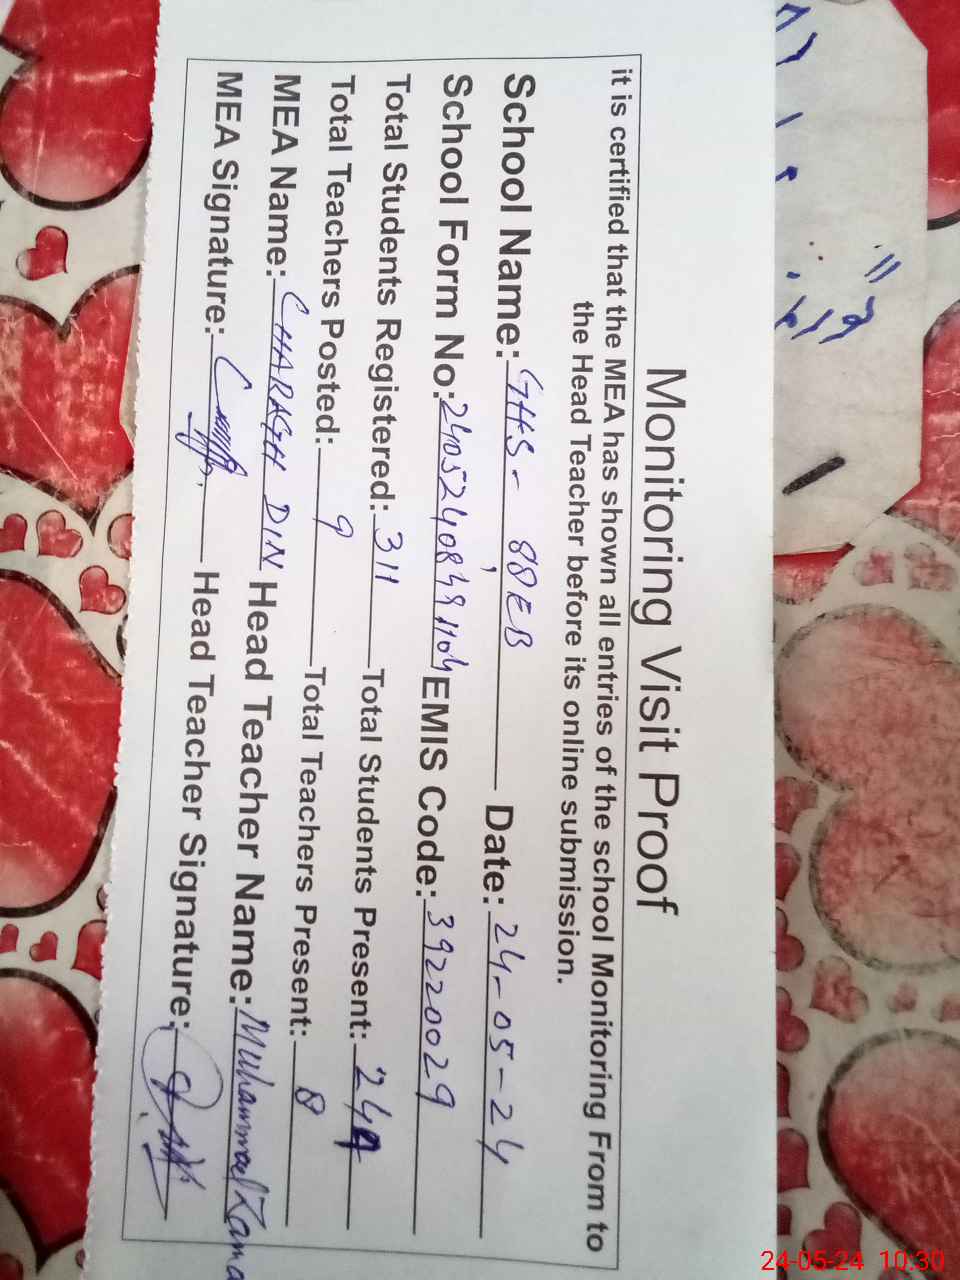 Monitoring Visit Proof
it is certified that the MEA has shown all entries of the school Monitoring From to
the Head Teacher before its online submission.
School Name: GHS - 88EB Date: 24-05-24
School Form No: EMIS Code: 39220029
Total Students Registered: 311 Total Students Present:
Total Teachers Posted: 9 Total Teachers Present: 8
MEA Name: CHARAGH DIN Head Teacher Name: Muhammad Zama
MEA Signature: Head Teacher Signature:
24-05-24 10:30